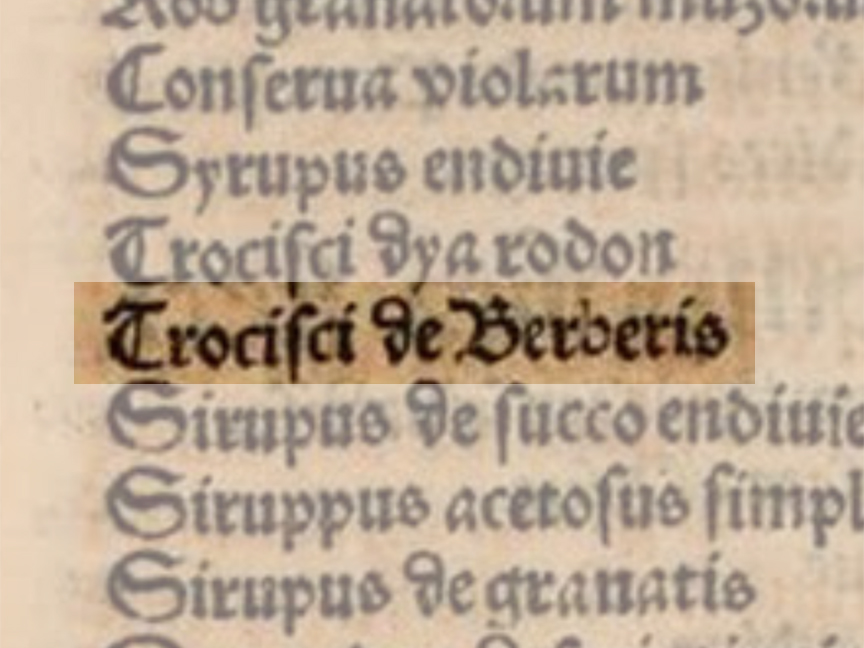 Conſerua violarum
Syrupus endiuie
Trociſci dya rodon
Trociſci de Berberis
Sirupus de ſucco endiuie
Siruppus acetoſus
Sirupus de granatis